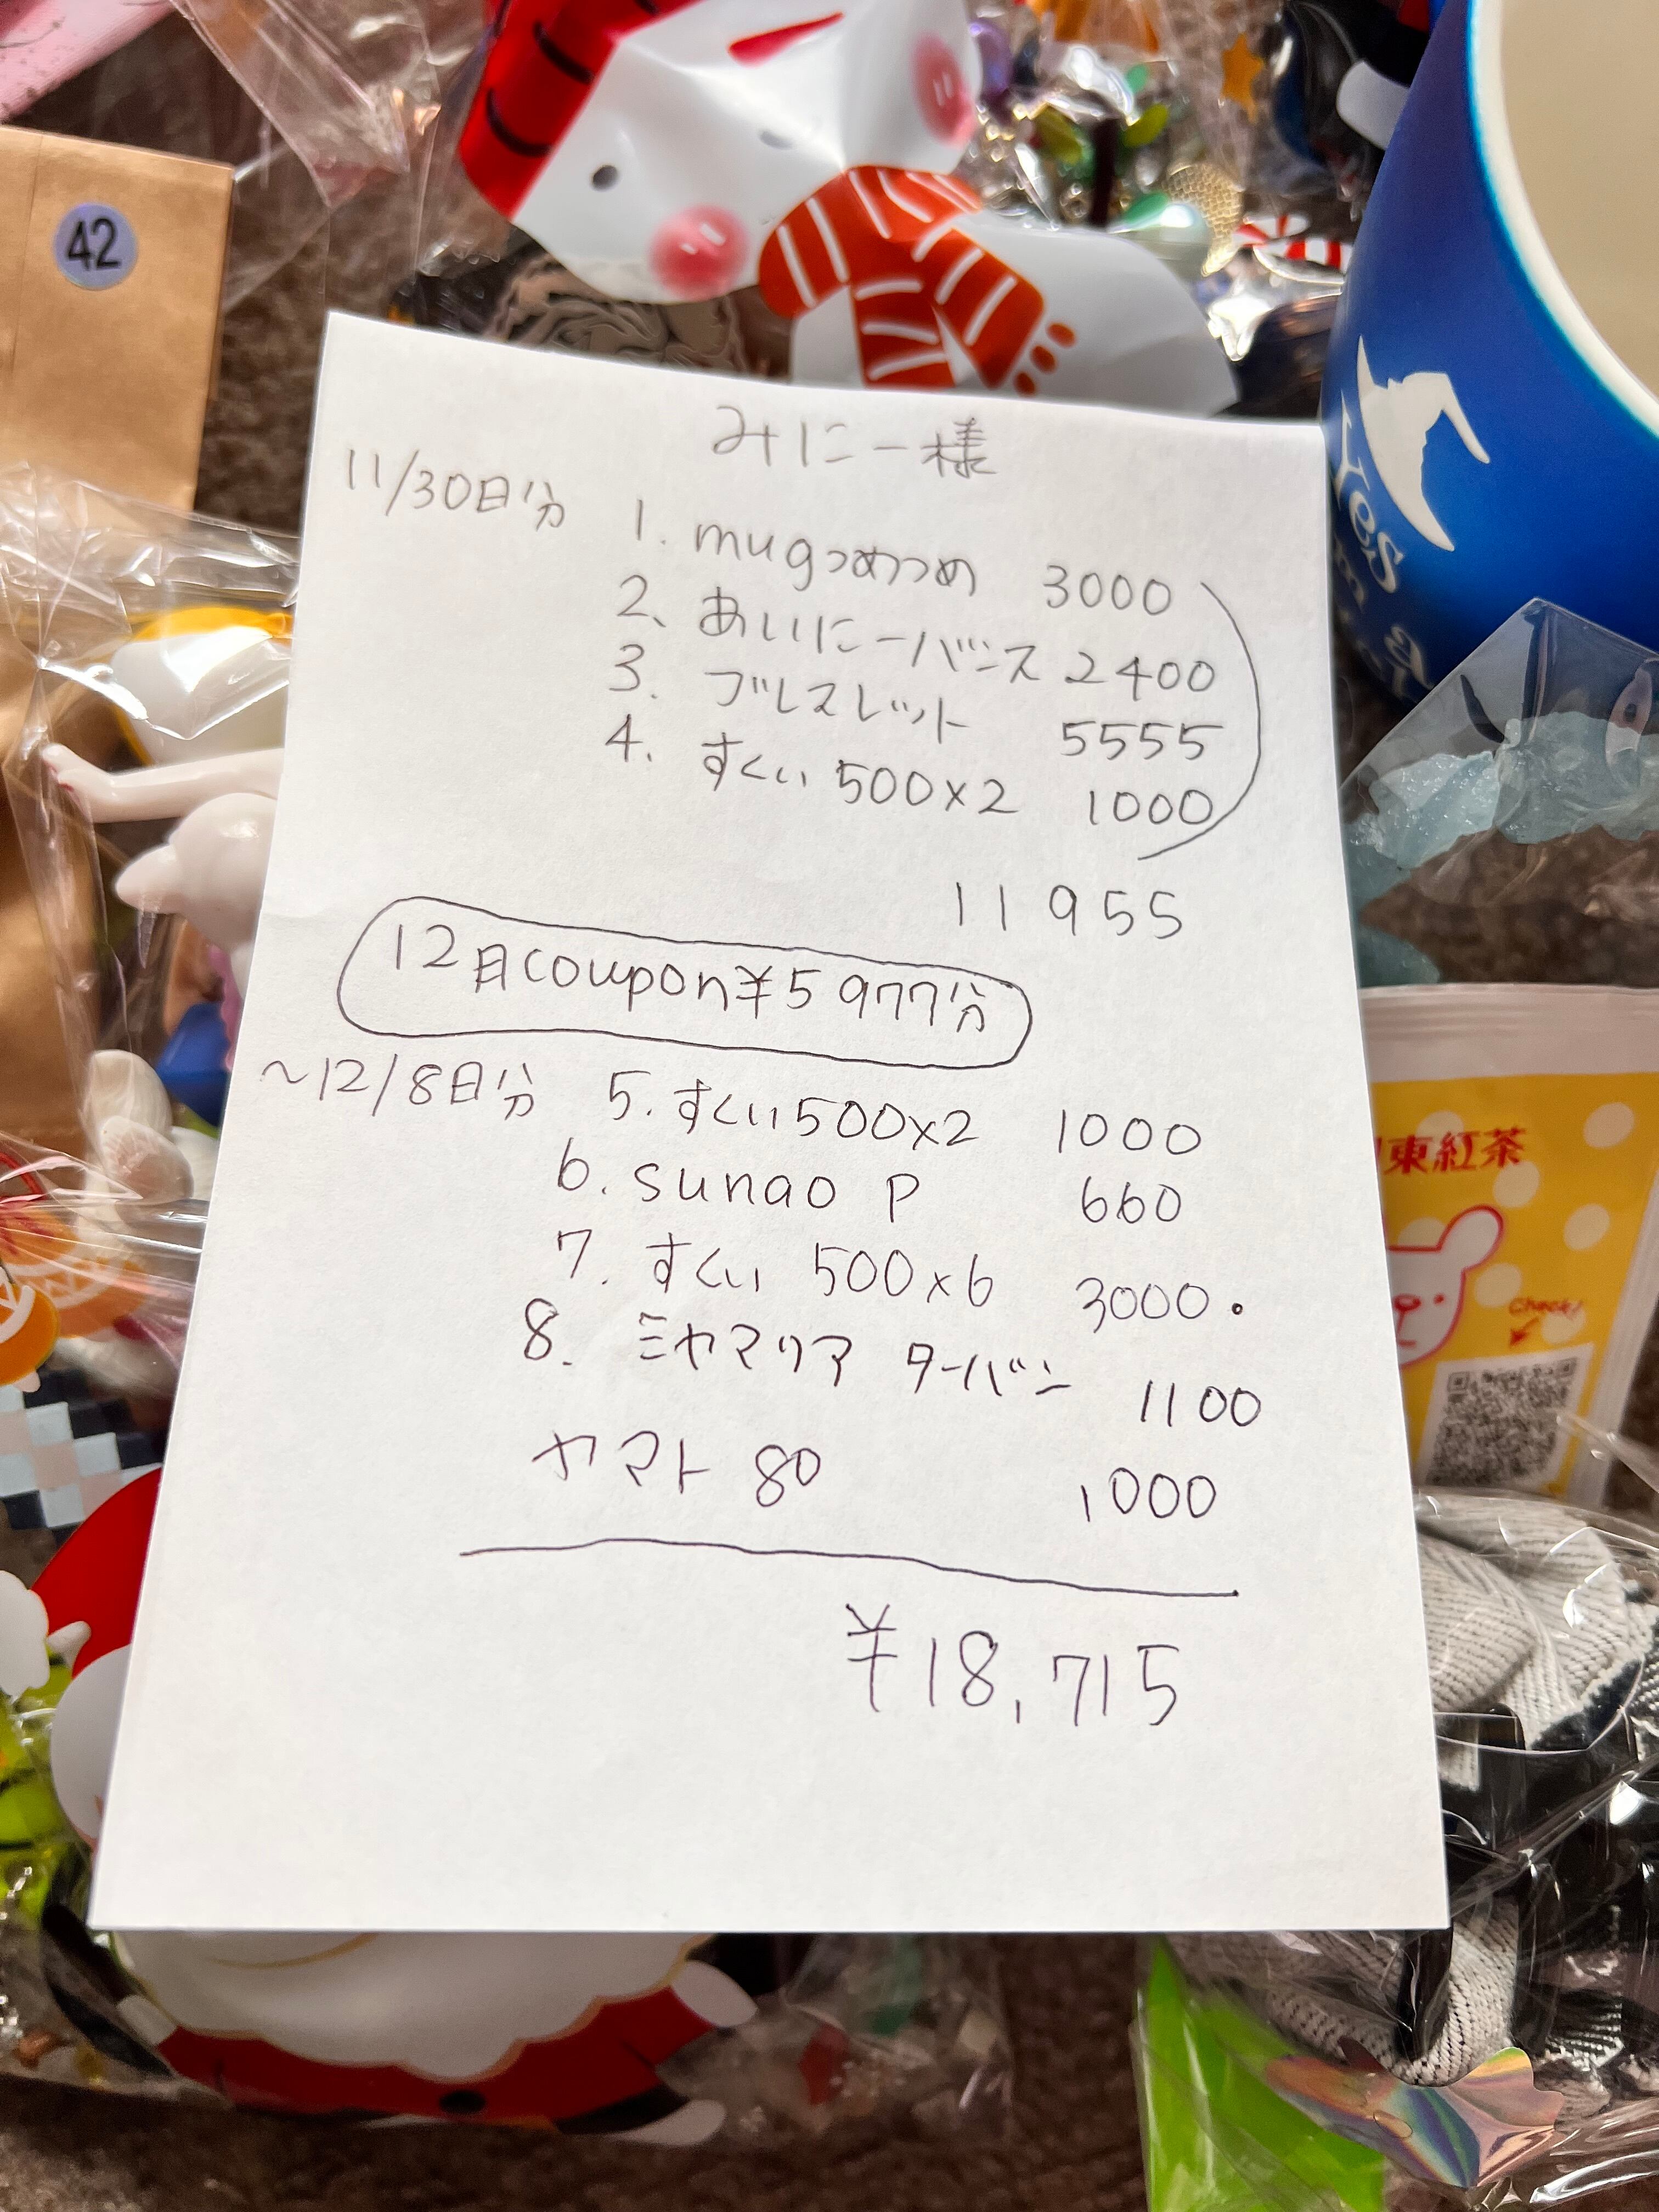 42
みにー様
11/30日分 1. mugつめつめ 3000
2、あいにーバンス 2400
3. ブレスレット 5555
4. すくい 500×2 1000
11955
12日coupon¥5977分
〜12/8日分 5. すくい500×2 1000
6. sunao P 660
7. すくい 500×6 3000・
8. ミヤマリア ターバン 1100
ヤマト 80 1000
¥18,715
Yes
a
東紅茶
Check!